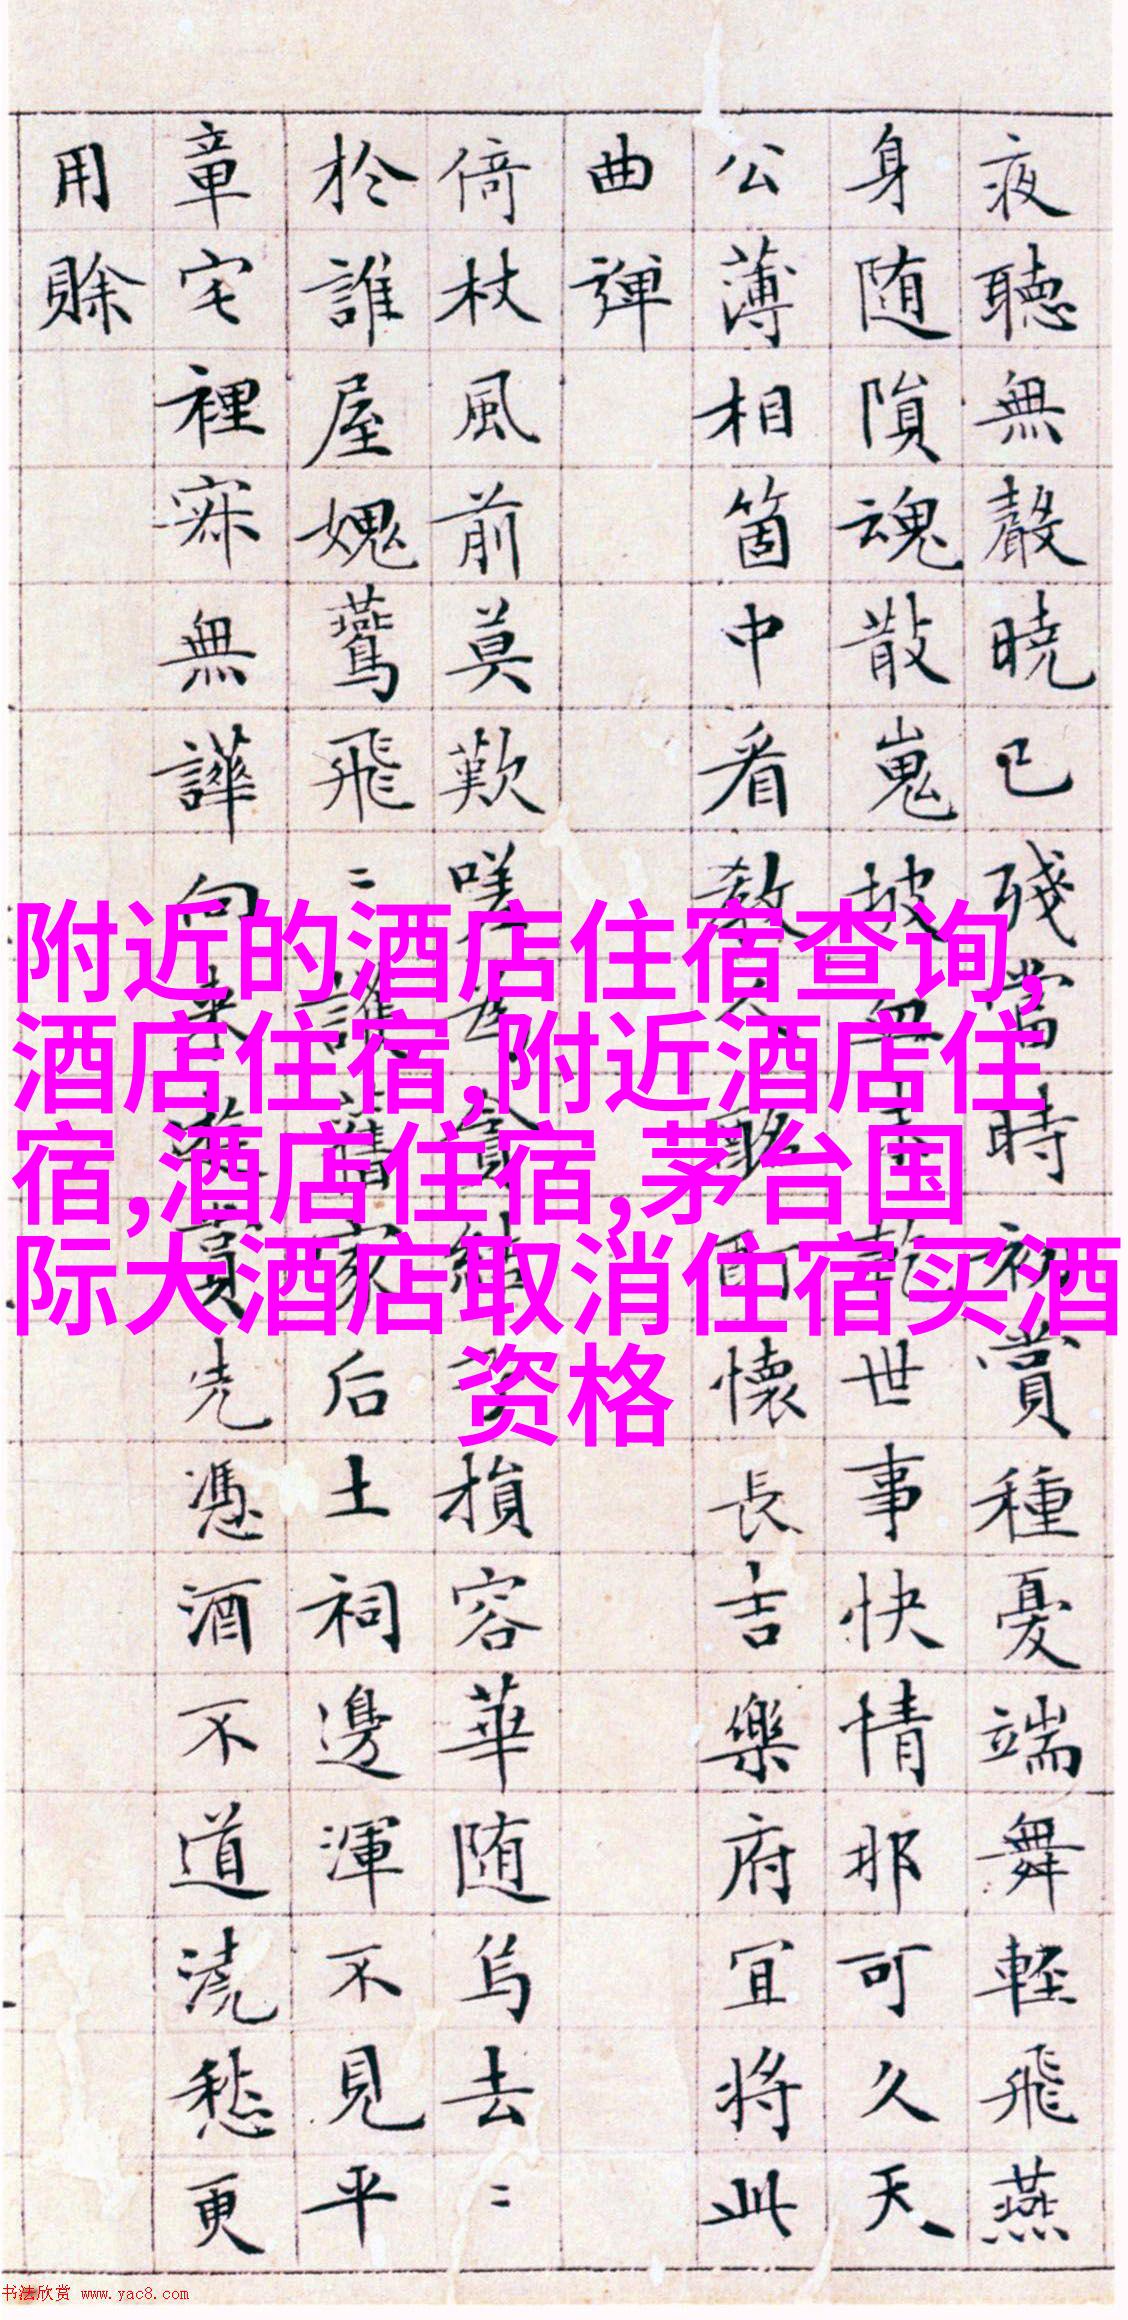 夜聽無聲曉已殘當時初賞種憂端舞輕飛燕
身隨隕魂散嵬坡血未乾世事快情那可久天
公薄相箇中看教人略可懷長吉樂府宜將此
曲彈
倚杖風前莫歎嗟損容華隨烏去〻
於誰屋媿鸞飛〻誰家后土祠邊渾不見平
章宅裡寂無譁向來賓先憑酒不道澆愁更
用賒
附近的酒店住宿查询,
酒店住宿,附近酒店住
宿,酒店住宿,茅台国
际大酒店取消住宿买酒
资格
书法欣赏 www.yac8.com